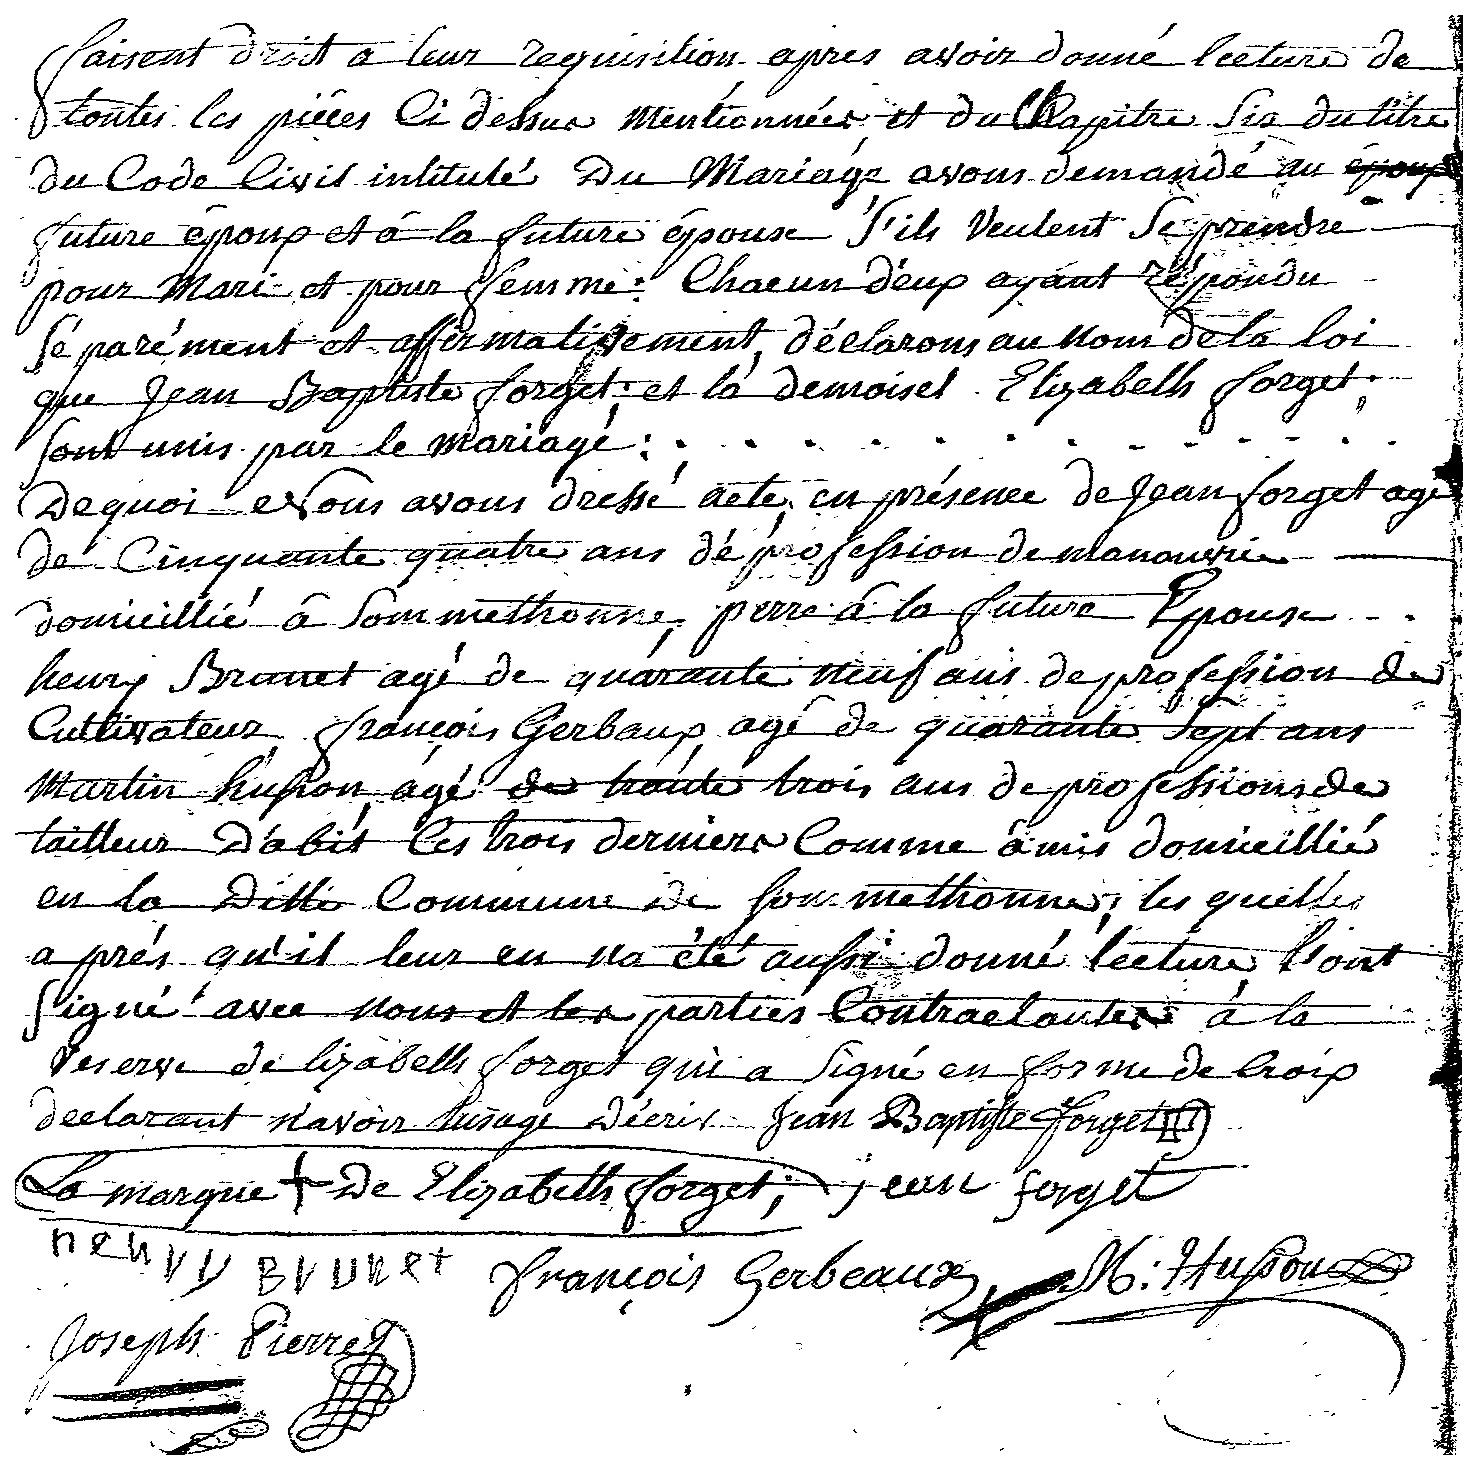 faisent droit a leur requisition apres avoir donné lecture de
toutes les piéces Ci dessus mentionnées et du Chapitre Six du titre
du Code Civil intitulé Du Mariage avons demandé au époux
future époux et à la future épouse S'ils Veulent Se prendre
pour Mari et pour femme: Chacun d'eux ayant répondu
Séparément et affirmativement, déclarons au nom de la loi
que Jean Baptiste forget; et la demoisel Elizabeth forget;
sont unis par le mariage:
De quoi Nous avons dressé acte en présence de Jean forget agé
de Cinquante quatre ans de profession de manouvrie
domicillié à Sommethonne, perre à la future Epouse
henry Brunet agé de quarante neuf ans de profession de
Cultivateur, françois Gerbaux agé de quarante Sept ans
Martin husson, agé de trante trois ans de professions de
tailleur D'abit Les trois derniers Comme amis domicillié
en la Ditte Commune de Sommethonne, les quelles
aprés qu'il leur en na été aussi donné lecture l'ont
Signé avec nous et les parties Contractantes à la
reserve de lizabeth forget qui a Signé en forme de Croix
declarant n'avoir lusage décrir Jean Baptiste forget
La marque + De Elizabeth forget; jean forget
henry Brunet françois Gerbeaux M: Husson
Joseph Pierret